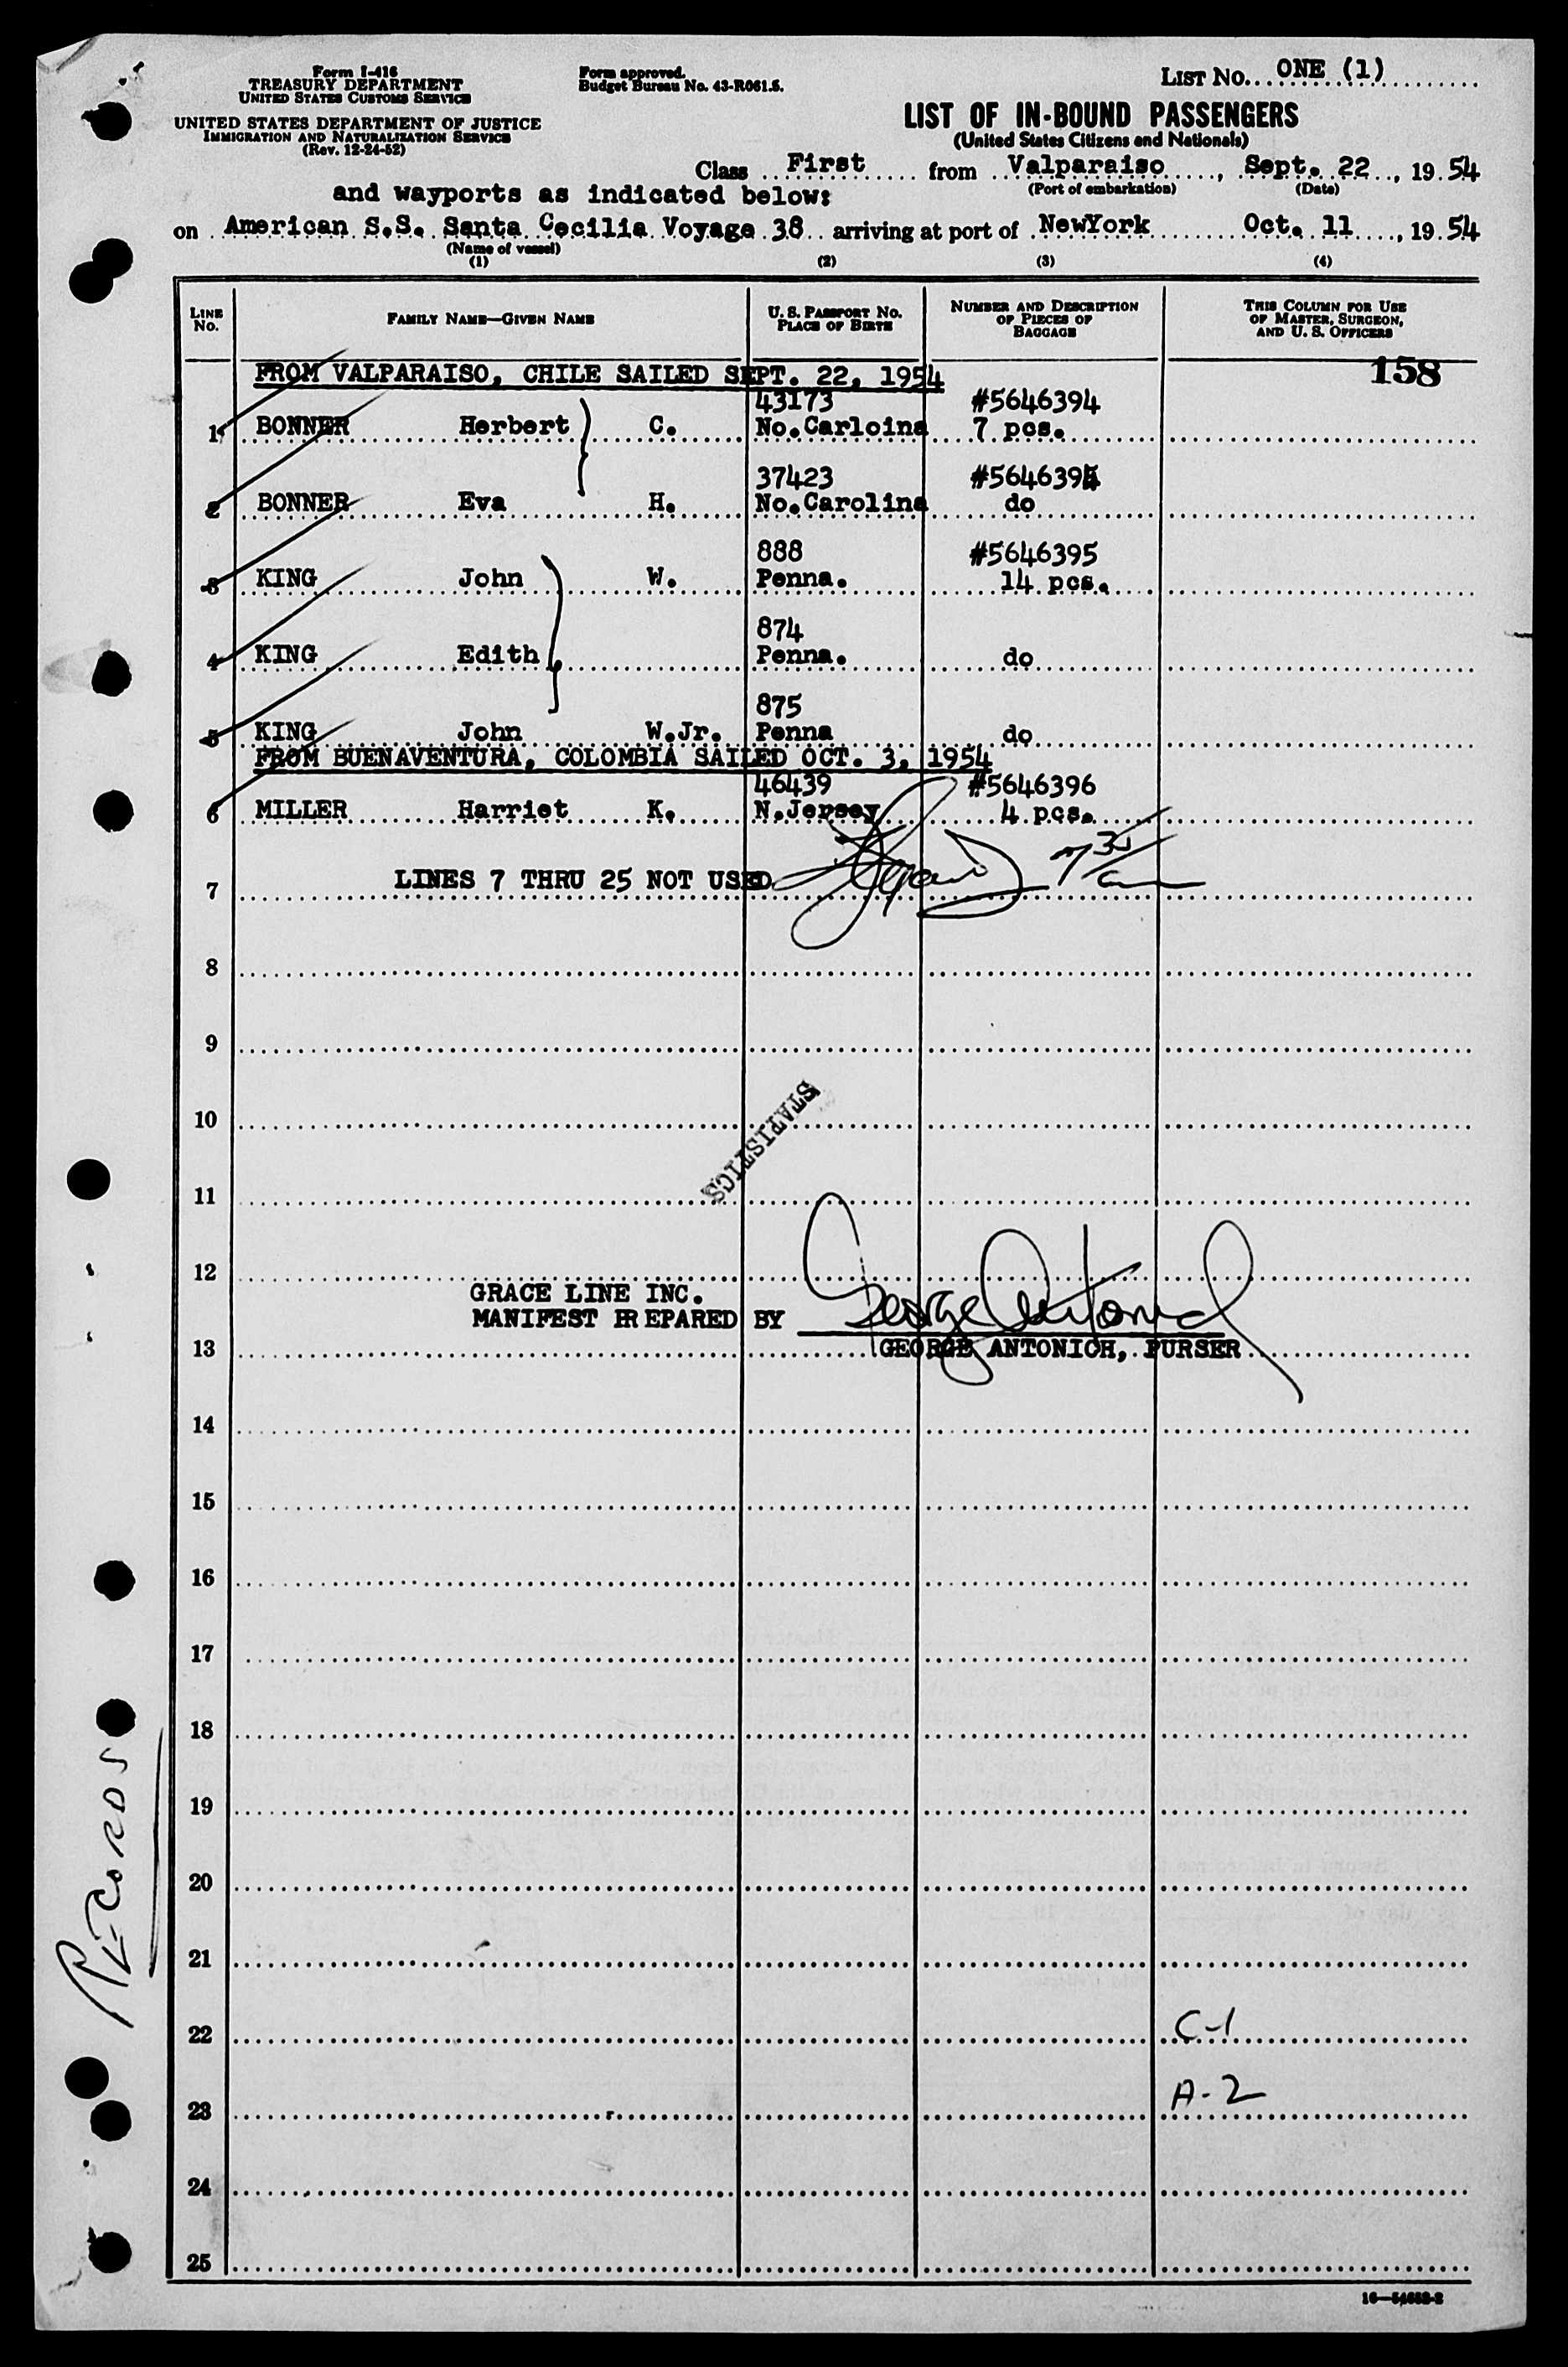 Form I-416
TREASURY DEPARTMENT
UNITED STATES CUSTOMS SERVICE
UNITED STATES DEPARTMENT OF JUSTICE
IMMIGRATION AND NATURALIZATION SERVICE
(Rev. 12-24-52)
Form approved.
Budget Bureau No. 43-R061.5.
LIST NO. ONE (1)
LIST OF IN-BOUND PASSENGERS
(United States Citizens and Nationals)
Class First from Valparaiso, Sept. 22, 19 54
(Port of embarkation) (Date)
and wayports as indicated below:
on American S.S. Santa Cecilia Voyage 38 arriving at port of NewYork Oct. 11, 19 54
(Name of vessel)
(1) (2) (3) (4)
LINE NO. FAMILY NAME—GIVEN NAME U. S. PASSPORT NO. PLACE OF BIRTH NUMBER AND DESCRIPTION OF PIECES OF BAGGAGE THIS COLUMN FOR USE OF MASTER, SURGEON, AND U. S. OFFICERS
158
FROM VALPARAISO, CHILE SAILED SEPT. 22, 1954
43173 #5646394
1 BONNER Herbert C. No.Carloina 7 pcs.
37423 #5646394
2 BONNER Eva H. No.Carolina do
888 #5646395
3 KING John W. Penna. 14 pcs.
874
4 KING Edith Penna. do
875
5 KING John W.Jr. Penna do
FROM BUENAVENTURA, COLOMBIA SAILED OCT. 3, 1954
46439 #5646396
6 MILLER Harriet K. N.Jersey 4 pcs.
7 LINES 7 THRU 25 NOT USED
8
9
10
STATISTICS
11
12
GRACE LINE INC.
MANIFEST PREPARED BY George Antonich
13 GEORGE ANTONICH, PURSER
14
15
16
17
18
19
20
21
22 C-1
23 A-2
24
25
RECORDS
16—54658-2